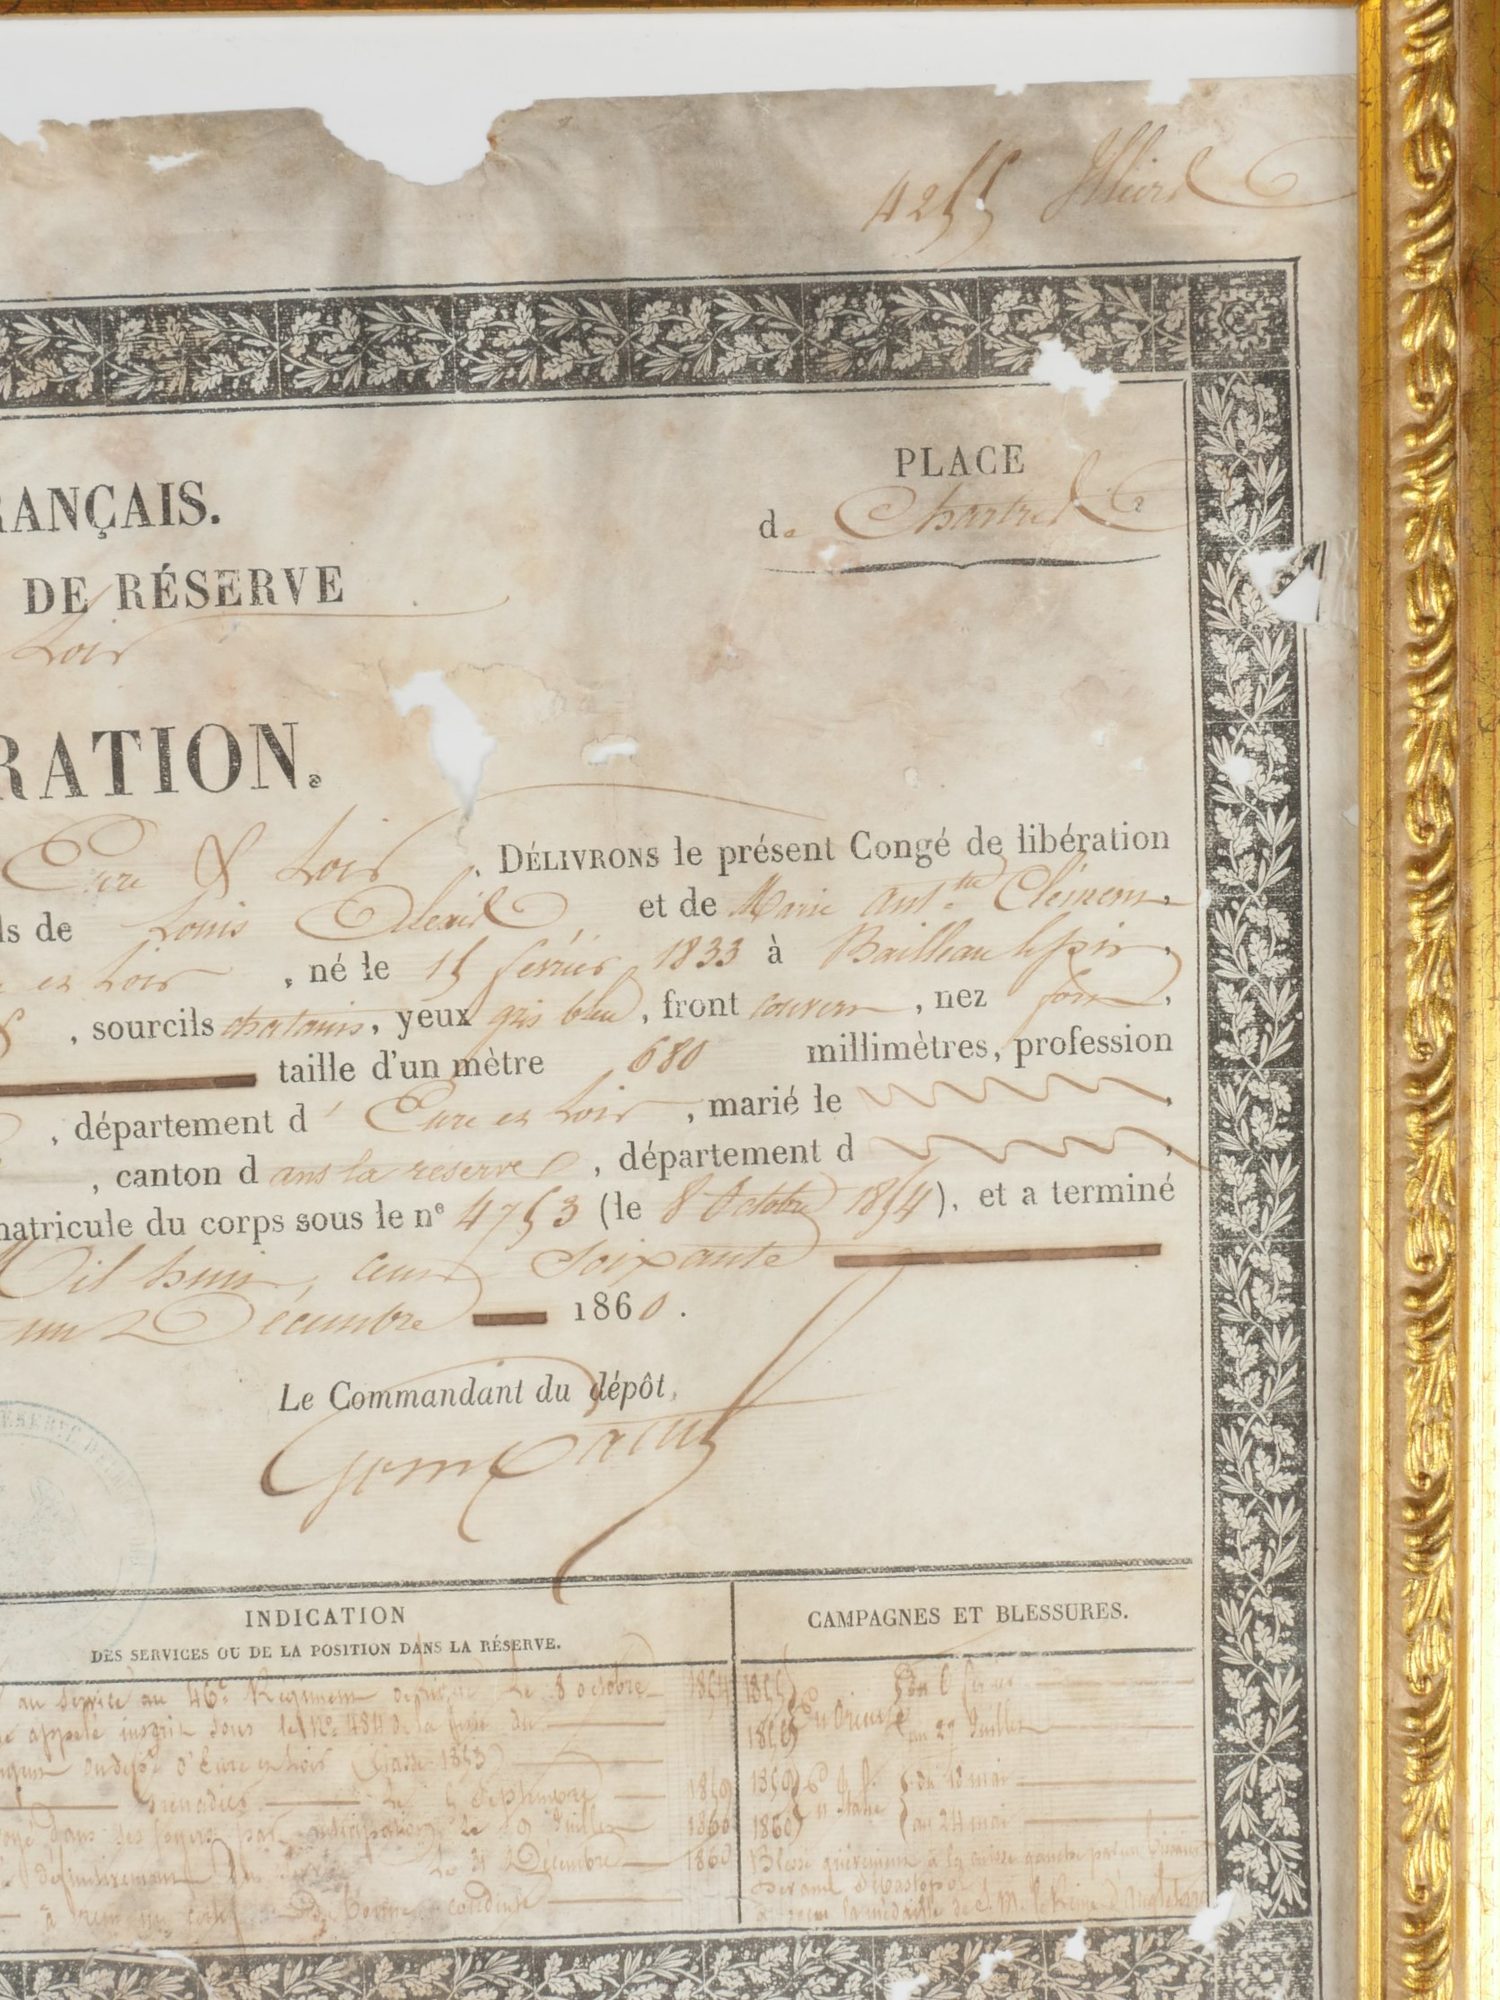 4255 Illiers
RANÇAIS.
PLACE
de Chartres
DE RÉSERVE
Loir
RATION.
Eure & Loir. DÉLIVRONS le présent Congé de libération
ls de Louis et de Marie Ant.tte Clémen
et Loir, né le 15 février 1833 à Bailleau l'pin,
, sourcils chatains, yeux gris bleu, front couvert, nez fort,
taille d'un mètre 680 millimètres, profession
, département d' Eure et Loir, marié le
, canton dans la réserve, département d
matricule du corps sous le ne 4753 (le 8 Octobre 1854), et a terminé
Mil huit cent soixante
un Décembre 1860.
Le Commandant du dépôt,
INDICATION
DES SERVICES OU DE LA POSITION DANS LA RÉSERVE.
CAMPAGNES ET BLESSURES.
au service au 46e Régiment de ligne le 8 octobre 1854
appelé inscrit sous le No 484 de la liste du
d'Eure et Loir (Classe 1853)
grenadier le 5 Septembre 1859
dans ses foyers par anticipation le 9 Juillet 1860
définitivement du service le 31 Décembre 1860
à reçu un certif de bonne conduite
1855 1856 en Orient du 6 février au 27 Juillet
1859 1860 en Italie du 18 mai au 24 mai
Blessé grièvement à la cuisse gauche par un
devant Sébastopol
à reçu la médaille de S. M. la Reine d'Angleterre